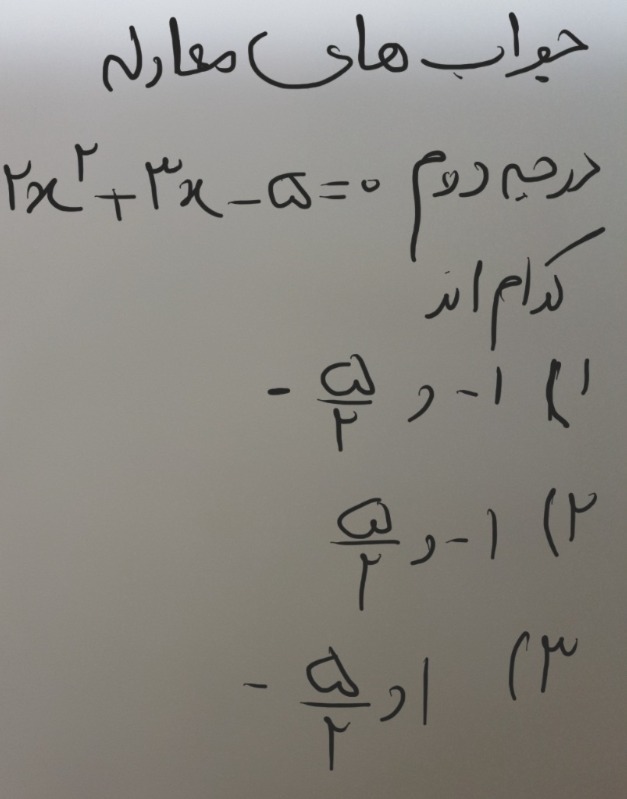 جواب های معادله
درجه دوم ۲x^۲ + ۳x - ۵ = ۰
کدام اند
۱) -۱ و -۵/۲
۲) -۱ و ۵/۲
۳) ۱ و -۵/۲